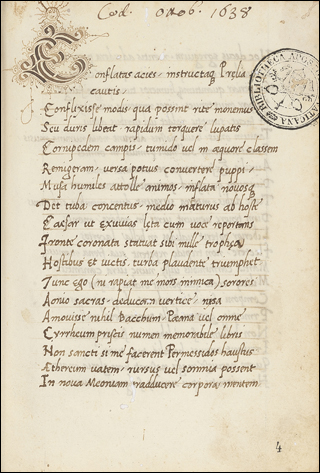 Cod. Ottob. 1638
Conflatas acies, instructaq; Prelia
cautis.
Conflixisse modis, qua possint rite monemus
Seu duris libeat rapidum torquere lupatis
Cornipedem campis, tumido vel in æquore classem
Remigeram, versa potius convertere puppi,
Musa humiles attolle animos, inflata novosq;
Det tuba concentus, medio maturus ab hoste
Cæsar ut exuvias læta cum voce reportans
Fronte coronata statuat sibi mille trophæa
Hostibus et victis turba plaudente triumphet
Tunc ego (ni rapiat me mors inimica) sorores
Aonio sacras deducam vertice, nisa
Amovisse nihil Bacchum, Pæana vel omne
Cyrrheum priscis numen memorabile libris
Non sancti si me facerent Permessidos haustus
Æthereum vatem, rursus vel somnia possent
In nova Mæoniam traducere corpora mentem
4
BIBLIOTHECA APOS VATICANA